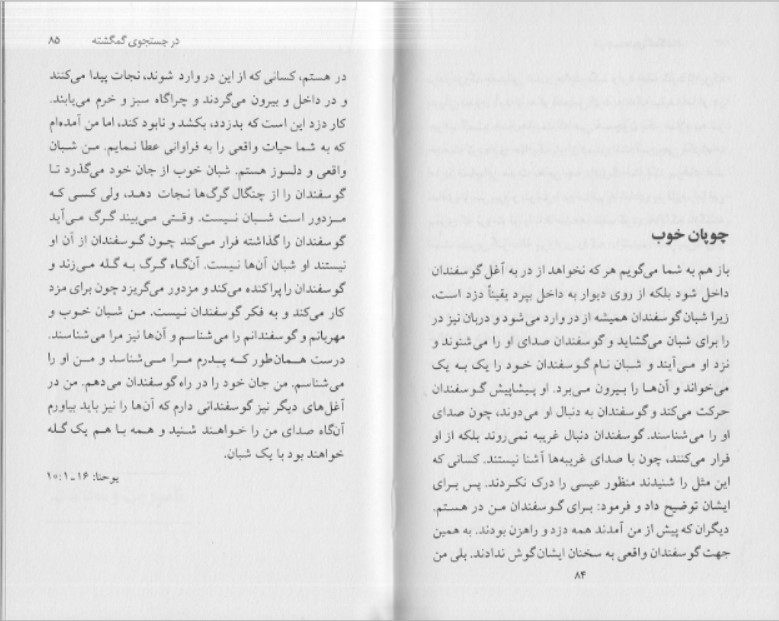 چوپان خوب
باز هم به شما می‌گویم هر که نخواهد از در به آغل گوسفندان
داخل شود بلکه از روی دیوار به داخل بپرد یقیناً دزد است،
زیرا شبان گوسفندان همیشه از در وارد می‌شود و دربان نیز در
را برای شبان می‌گشاید و گوسفندان صدای او را می‌شنوند و
نزد او می‌آیند و شبان نام گوسفندان خود را یک به یک
می‌خواند و آن‌ها را بیرون می‌برد. او پیشاپیش گوسفندان
حرکت می‌کند و گوسفندان به دنبال او می‌دوند، چون صدای
او را می‌شناسند. گوسفندان دنبال غریبه نمی‌روند بلکه از او
فرار می‌کنند، چون با صدای غریبه‌ها آشنا نیستند. کسانی که
این مثل را شنیدند منظور عیسی را درک نکردند. پس برای
ایشان توضیح داد و فرمود: برای گوسفندان من در هستم.
دیگران که پیش از من آمدند همه دزد و راهزن بودند. به همین
جهت گوسفندان واقعی به سخنان ایشان گوش ندادند. بلی من
۸۴
در جستجوی گمگشته ۸۵
در هستم، کسانی که از این در وارد شوند، نجات پیدا می‌کنند
و در داخل و بیرون می‌گردند و چراگاه سبز و خرم می‌یابند.
کار دزد این است که بدزدد، بکشد و نابود کند، اما من آمده‌ام
که به شما حیات واقعی را به فراوانی عطا نمایم. من شبان
واقعی و دلسوز هستم. شبان خوب از جان خود می‌گذرد تا
گوسفندان را از چنگال گرگ‌ها نجات دهد، ولی کسی که
مزدور است شبان نیست. وقتی می‌بیند گرگ می‌آید
گوسفندان را گذاشته فرار می‌کند چون گوسفندان از آن او
نیستند او شبان آن‌ها نیست. آن‌گاه گرگ به گله می‌زند و
گوسفندان را پراکنده می‌کند و مزدور می‌گریزد چون برای مزد
کار می‌کند و به فکر گوسفندان نیست. من شبان خوب و
مهربانم و گوسفندانم را می‌شناسم و آن‌ها نیز مرا می‌شناسند.
درست همان‌طور که پدرم مرا می‌شناسد و من او را
می‌شناسم. من جان خود را در راه گوسفندان می‌دهم. من در
آغل‌های دیگر نیز گوسفندانی دارم که آن‌ها را نیز باید بیاورم
آن‌گاه صدای من را خواهند شنید و همه با هم یک گله
خواهند بود با یک شبان.
یوحنا: ۱۶-۱:۱۰